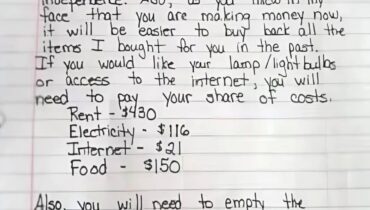 independence. Also, as you threw in my
face that you are making money now,
it will be easier to buy back all the
items I bought for you in the past.
If you would like your lamp/lightbulbs
or access to the internet, you will
need to pay your share of costs.
Rent - $430
Electricity - $116
Internet - $21
Food - $150
Also, you will need to empty the